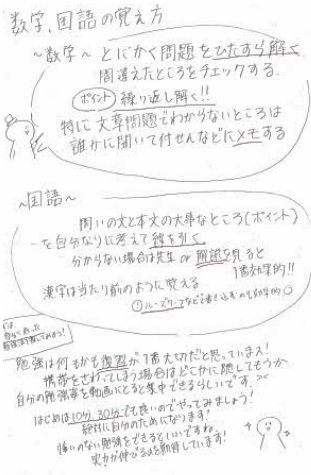 数学、国語の覚え方
～数学～ とにかく問題をひたすら解く
間違えたところをチェックする.
ポイント 繰り返し解く!!
特に文章問題でわからないところは
誰かに聞いて付せんなどにメモする
～国語～
問いの文と本文の大事なところ(ポイント)
を自分なりに考えて線を引く
分からない場合は先生 or 解説を見ると
1番効果的!!
漢字は当たり前のように覚える
勉強は何もかも復習が1番大切だと思っていまス!
携帯をさわってしまう場合はどこかに隠してもらうか
自分の勉強姿を動画にとると集中できるらしいです.
はじめは10分、30分でも良いのでやってみましょう!
絶対に自分のためになります!
悔いのない勉強をできるといいですね.
実力が伸びるのを期待しています!